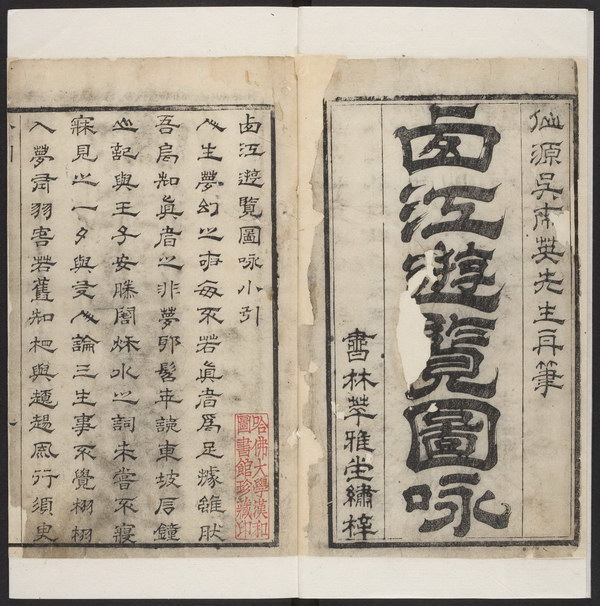 仙源吳英先生丹筆
西江遊覽圖咏
書林萃雅堂繡梓
西江遊覽圖咏小引
人生夢幻之事每不若真者為足據雖然
吾烏知真者之非夢耶髫年讀東坡石鐘
山記與王子安滕閣秋水之詞未嘗不寢
寐見之一夕與人論三生事不覺栩栩
入夢肅羽客若舊知與行須臾
哈佛大學漢和
圖書館珍藏印